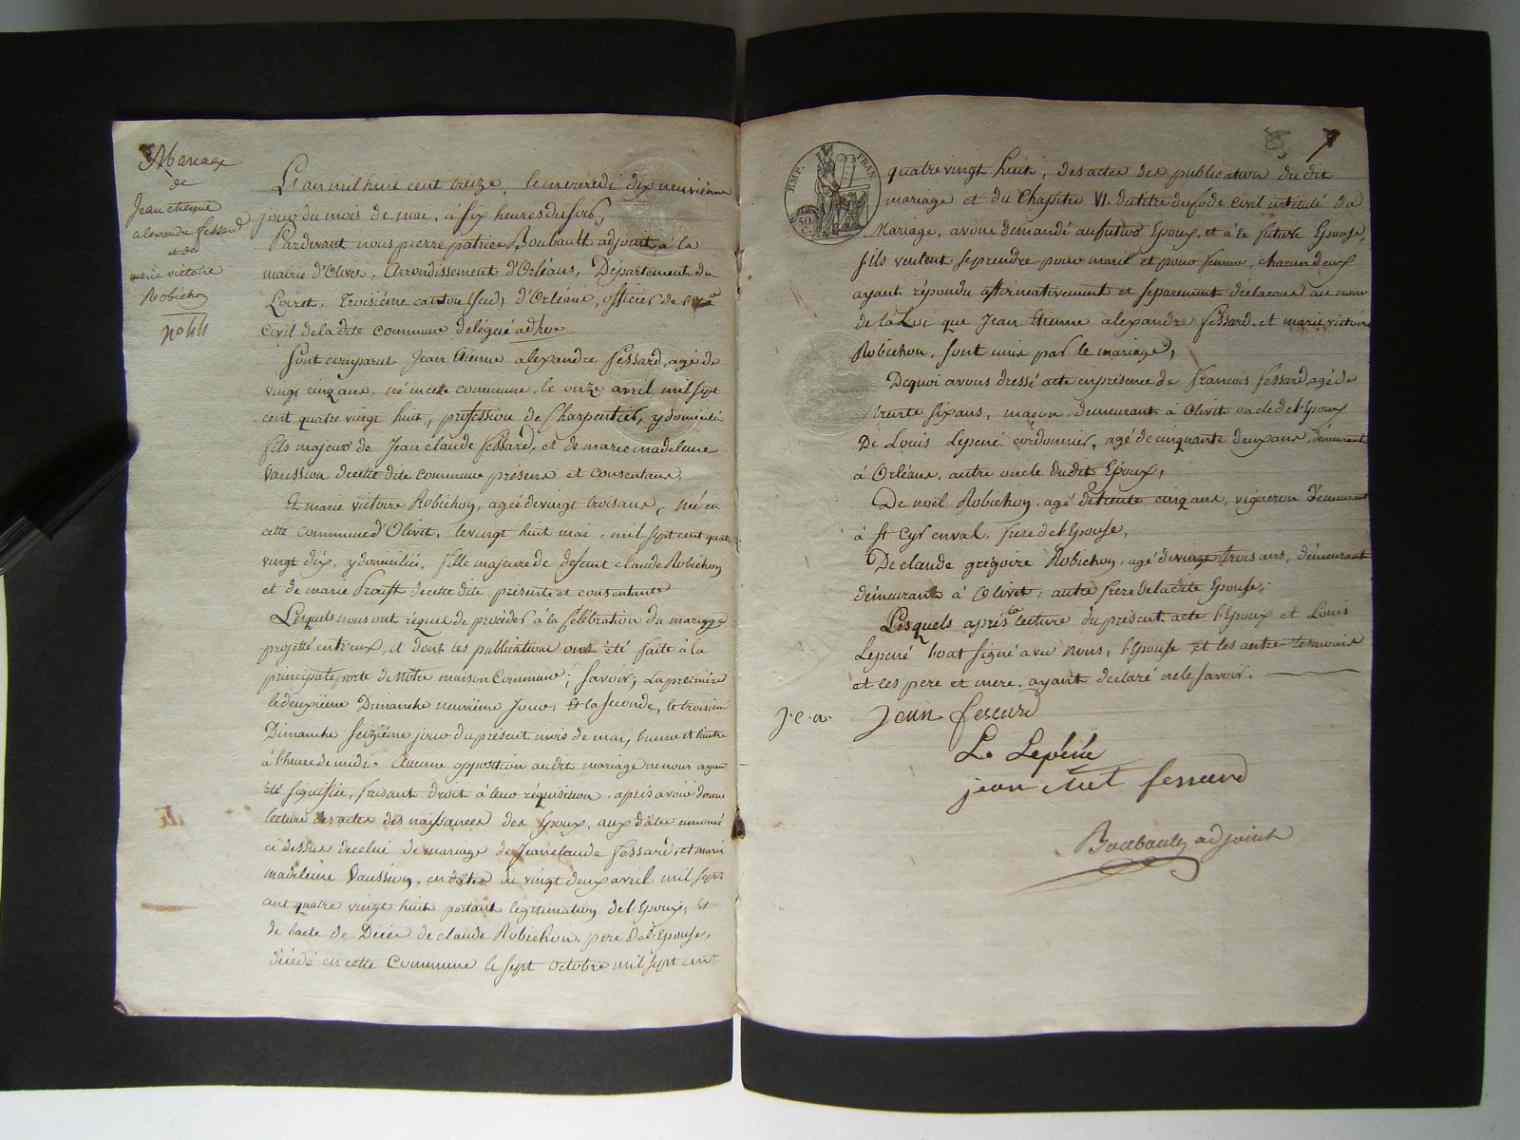 Mariage
de
Jean etienne
alexandre fessard
et de
marie victoire
Robichon
L'an mil huit cent treize, le mercredi dix neuvieme
jour du mois de mai, à six heures du soir,
Pardevant nous pierre patrice Boubault adjoint à la
mairie d'Olivet, Arrondissement d'Orléans, Département du
Loiret, troisième canton Sud, d'Orléans, officier de l'état
Civil de la dite commune délégué ad hoc
Sont comparus Jean Etienne alexandre fessard, agé de
vingt cinq ans, né en cette commune, le onze avril mil sept
cent quatre vingt huit, profession de Charpentier, y domicilié
fils majeur de Jean claude fessard, et de marie madeleine
Vaussion de cette dite commune présens et consentans,
Et marie victoire Robichon, agée de vingt trois ans, née en
cette commune d'Olivet, le vingt huit mai, mil sept cent quatre
vingt dix, y domiciliée, fille majeure de defunt claude Robichon
et de marie de cette dite présente et consentante
Lesquels nous ont réquis de procéder à la Célébration du mariage
projetté entr'eux, et dont les publications ont été faite à la
principale porte de Notre maison Commune; Savoir, La première
le deuxième Dimanche neuvième jour, Et la seconde, le troisième
Dimanche Seizième jour du présent mois de mai, l'une et l'autre
à l'heure de midi. Aucune opposition au dit mariage ne nous ayant
été signifiée, faisant droit à leur réquisition, après avoir donné
lecture des actes des naissances des Epoux, aux dates
ci dessus de celui de mariage de Jean claude fessard, et marie
madeleine Vaussion, en date du vingt deux avril mil sept
cent quatre vingt huit portant légitimation de l'Epoux, Et
de l'acte de Décès de claude Robichon pere de l'Epouse,
décédé en cette Commune le sept octobre mil sept cent
EMP. FRAN.
quatre vingt huit, des actes des publication du dit
mariage et du Chapitre VI. du titre du Code Civil intitulé Du
Mariage, avons demandé au futur Epoux, et à la future Epouse,
s'ils veulent se prendre pour mari et pour femme, chacun d'eux
ayant répondu affirmativement et séparement declarons au nom
de la Loi que Jean Etienne alexandre fessard et marie victoire
Robichon, sont unis par le mariage,
De quoi avons dressé acte en présence de francois fessard agé de
trente six ans, maçon demeurant à Olivet oncle de l'Epoux
De Louis Lepené cordonnier, agé de cinquante deux ans, demeurant
à Orléans, autre oncle du dit Epoux,
De noël Robichon agé de trente cinq ans, vigneron Demeurant
à St Cyr en val, frere de l'Epouse,
De claude grégoire Robichon, agé de vingt trois ans, démeurant
démeurant à Olivet, autre frere de la dite Epouse,
Lesquels après la lecture du présent acte l'Epoux et Louis
Lepené l'ont signé avec Nous, l'Epouse et les autre temoins
et les pere et mere, ayant declaré ne le savoir.
j. e. a. Jean fessard
L. Lepéné
jean fessard
Boubault adjoint